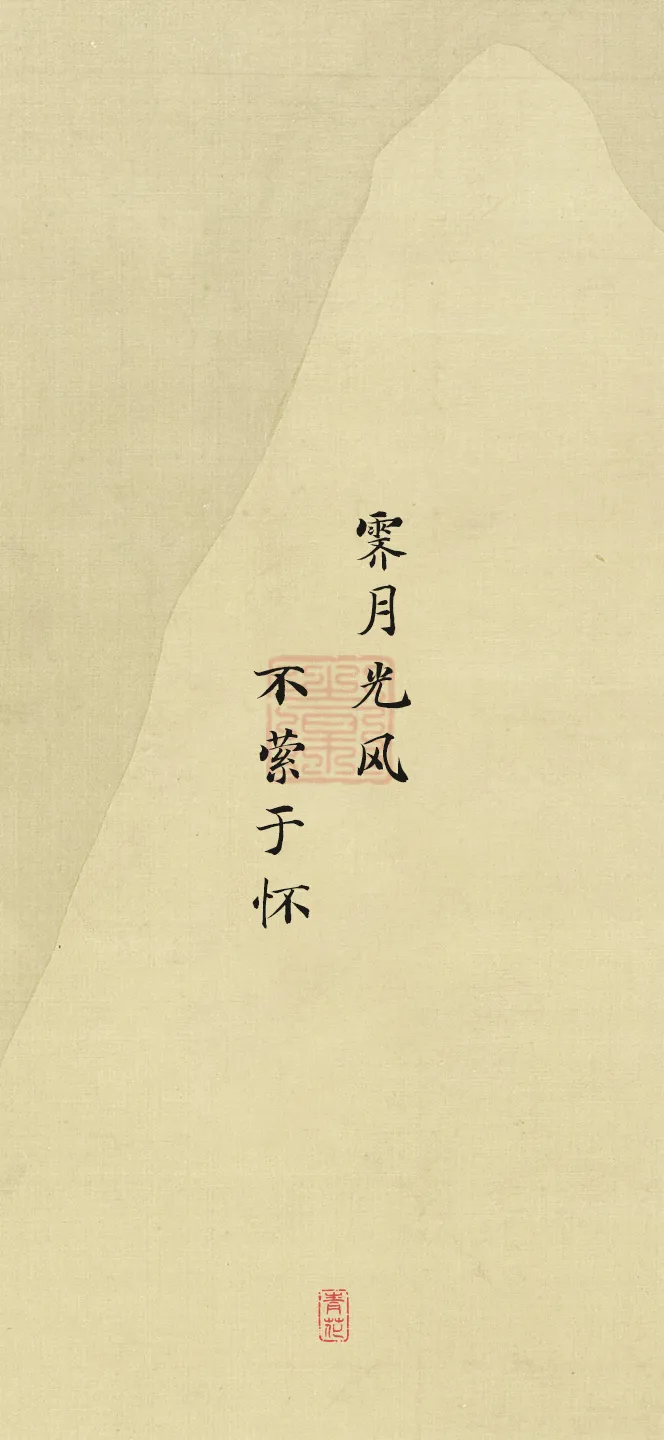 霁月光风
不萦于怀
青花